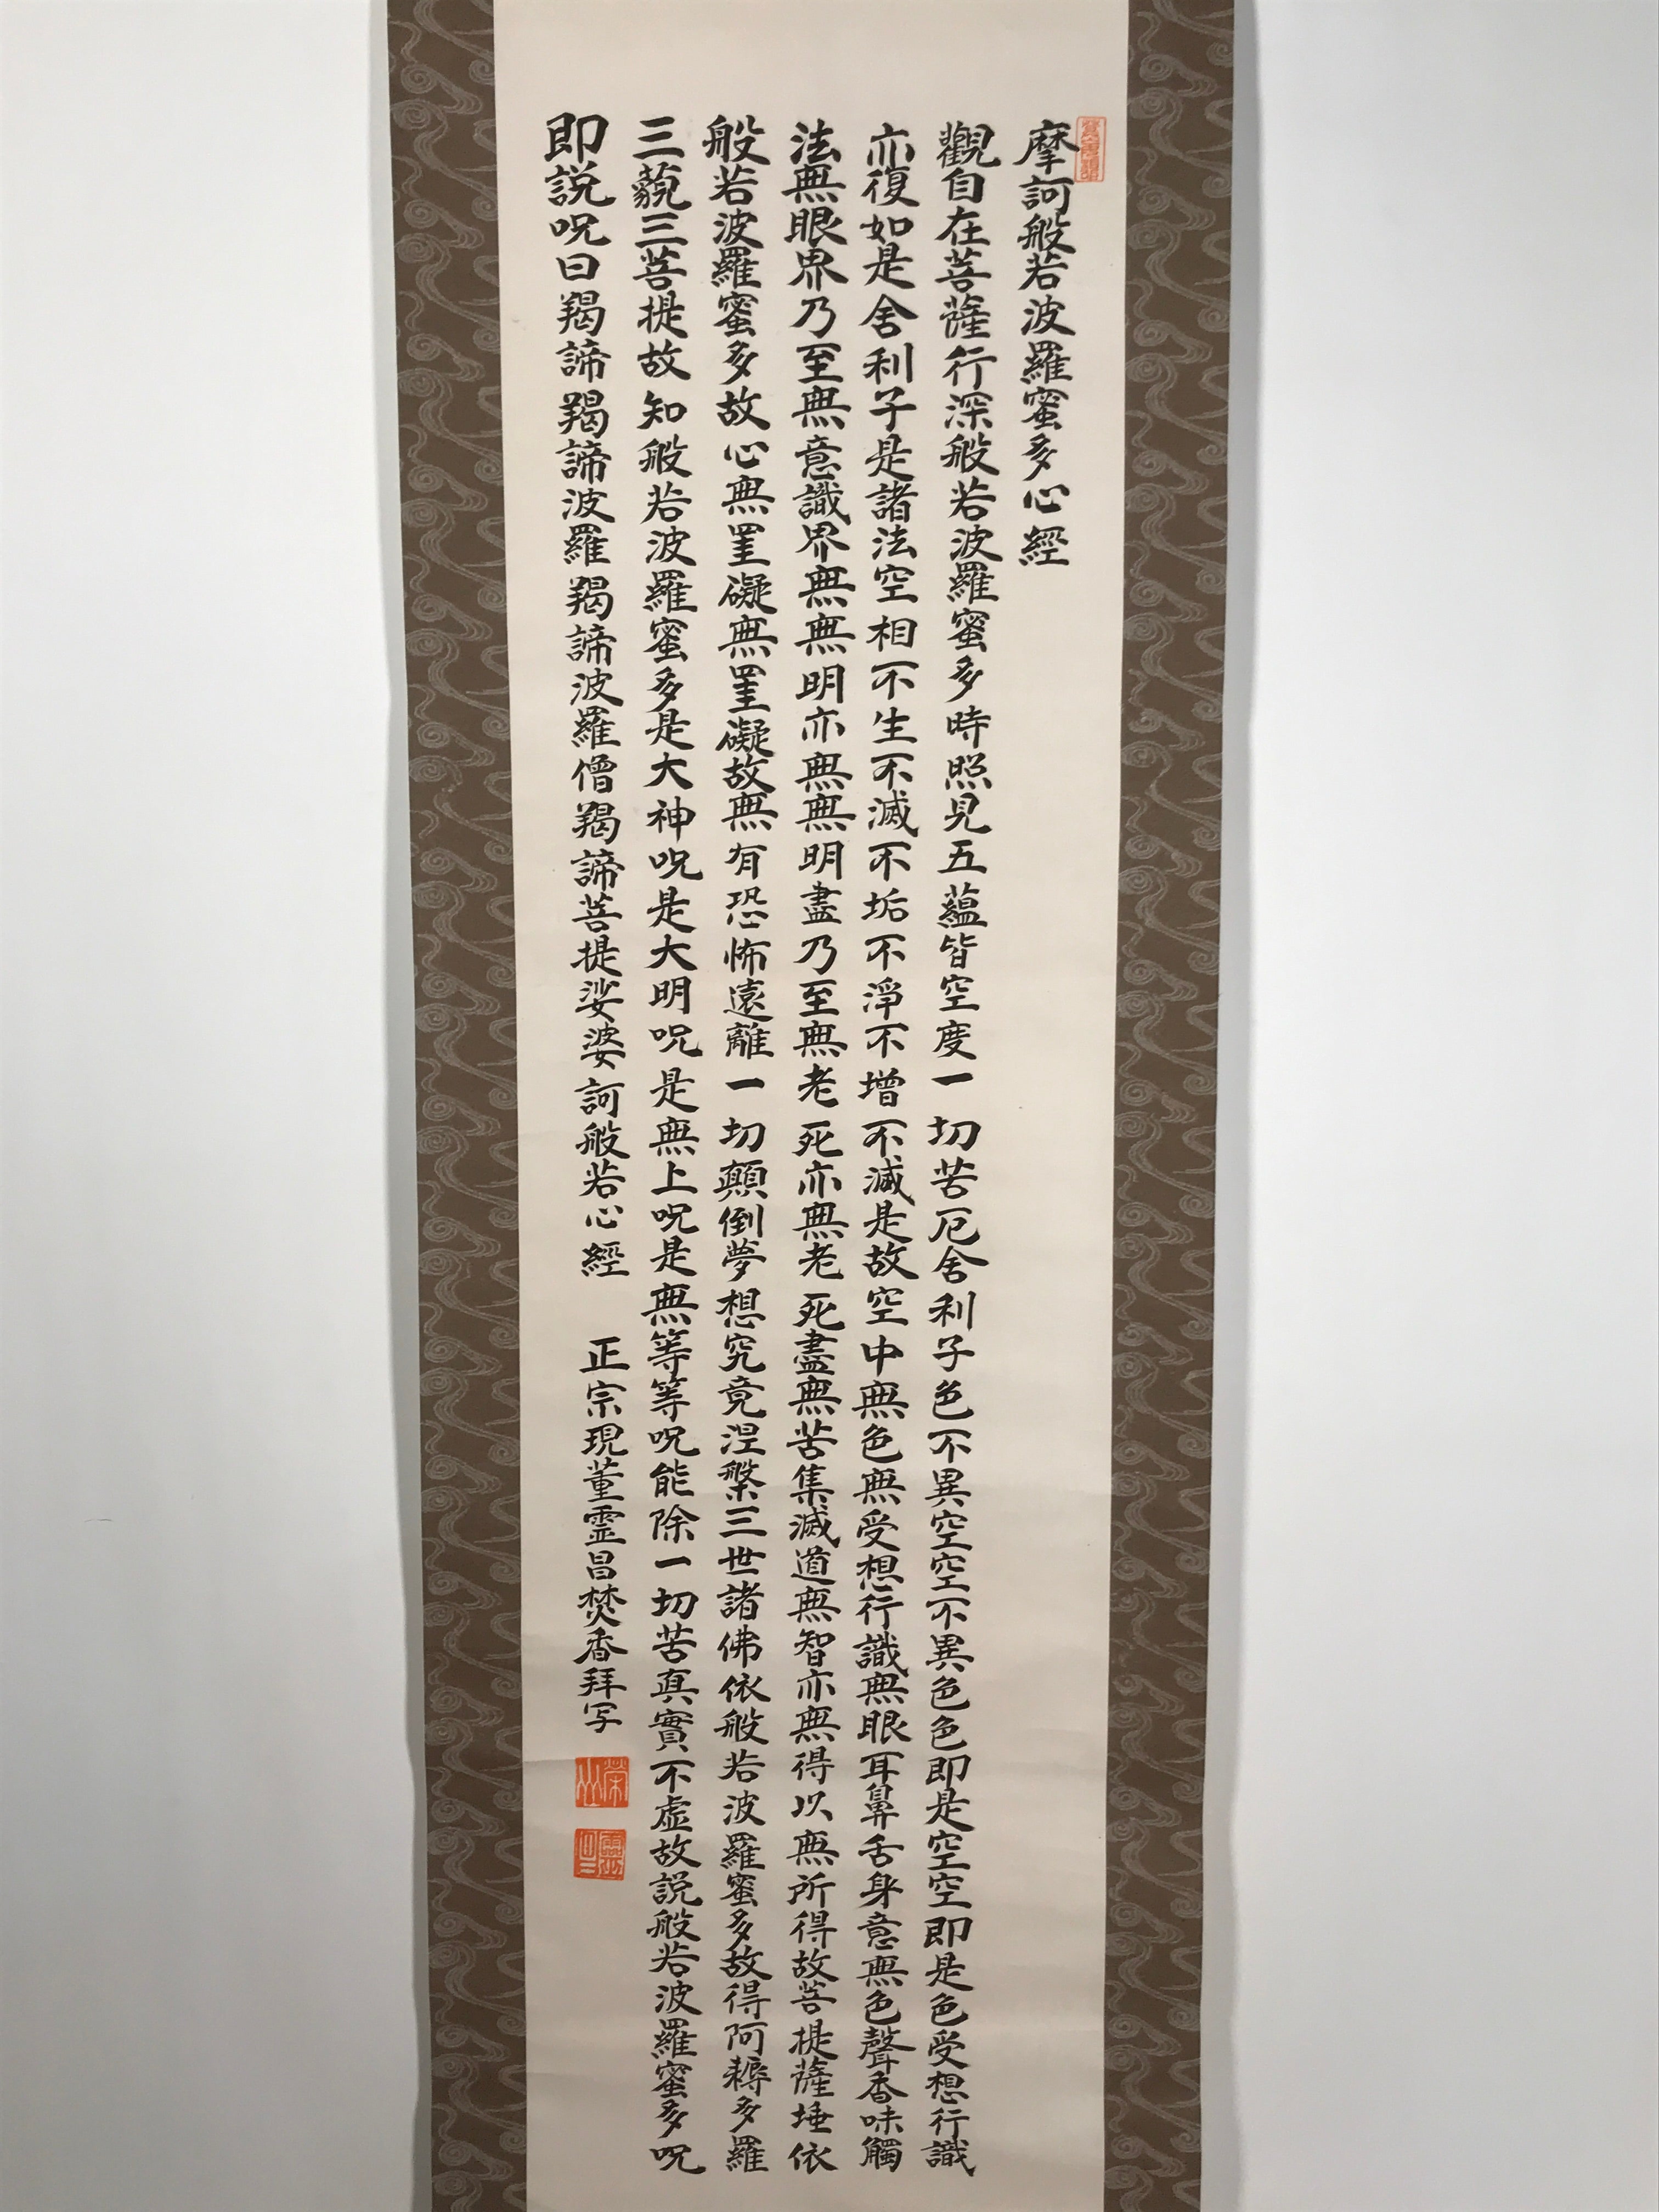 摩訶般若波羅蜜多心經
觀自在菩薩行深般若波羅蜜多時照見五蘊皆空度一切苦厄舍利子色不異空空不異色色即是空空即是色受想行識
亦復如是舍利子是諸法空相不生不滅不垢不淨不增不減是故空中無色無受想行識無眼耳鼻舌身意無色聲香味觸
法無眼界乃至無意識界無無明亦無無明盡乃至無老死亦無老死盡無苦集滅道無智亦無得以無所得故菩提薩埵依
般若波羅蜜多故心無罣礙無罣礙故無有恐怖遠離一切顛倒夢想究竟涅槃三世諸佛依般若波羅蜜多故得阿耨多羅
三藐三菩提故知般若波羅蜜多是大神呪是大明呪是無上呪是無等等呪能除一切苦真實不虛故説般若波羅蜜多呪
即説呪曰羯諦羯諦波羅羯諦波羅僧羯諦菩提娑婆訶般若心經 正宗現董霊昌焚香拜写